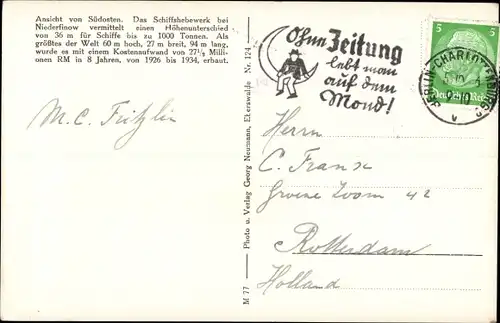 Ansicht von Südosten. Das Schiffshebewerk bei
Niederfinow vermittelt einen Höhenunterschied
von 36 m für Schiffe bis zu 1000 Tonnen. Als
größtes der Welt 60 m hoch, 27 m breit, 94 m lang,
wurde es mit einem Kostenaufwand von 27½ Milli-
onen RM in 8 Jahren, von 1926 bis 1934, erbaut.
M.C. Fritzlin
M 77 Photo u. Verlag Georg Neumann, Eberswalde Nr. 124
Ohne Zeitung
lebt man
auf dem
Mond!
BERLIN-CHARLOTTENBURG 2
5 5
Deutsches Reich
Herrn
C. Franx
Groene Zoom 42
Rotterdam
Holland